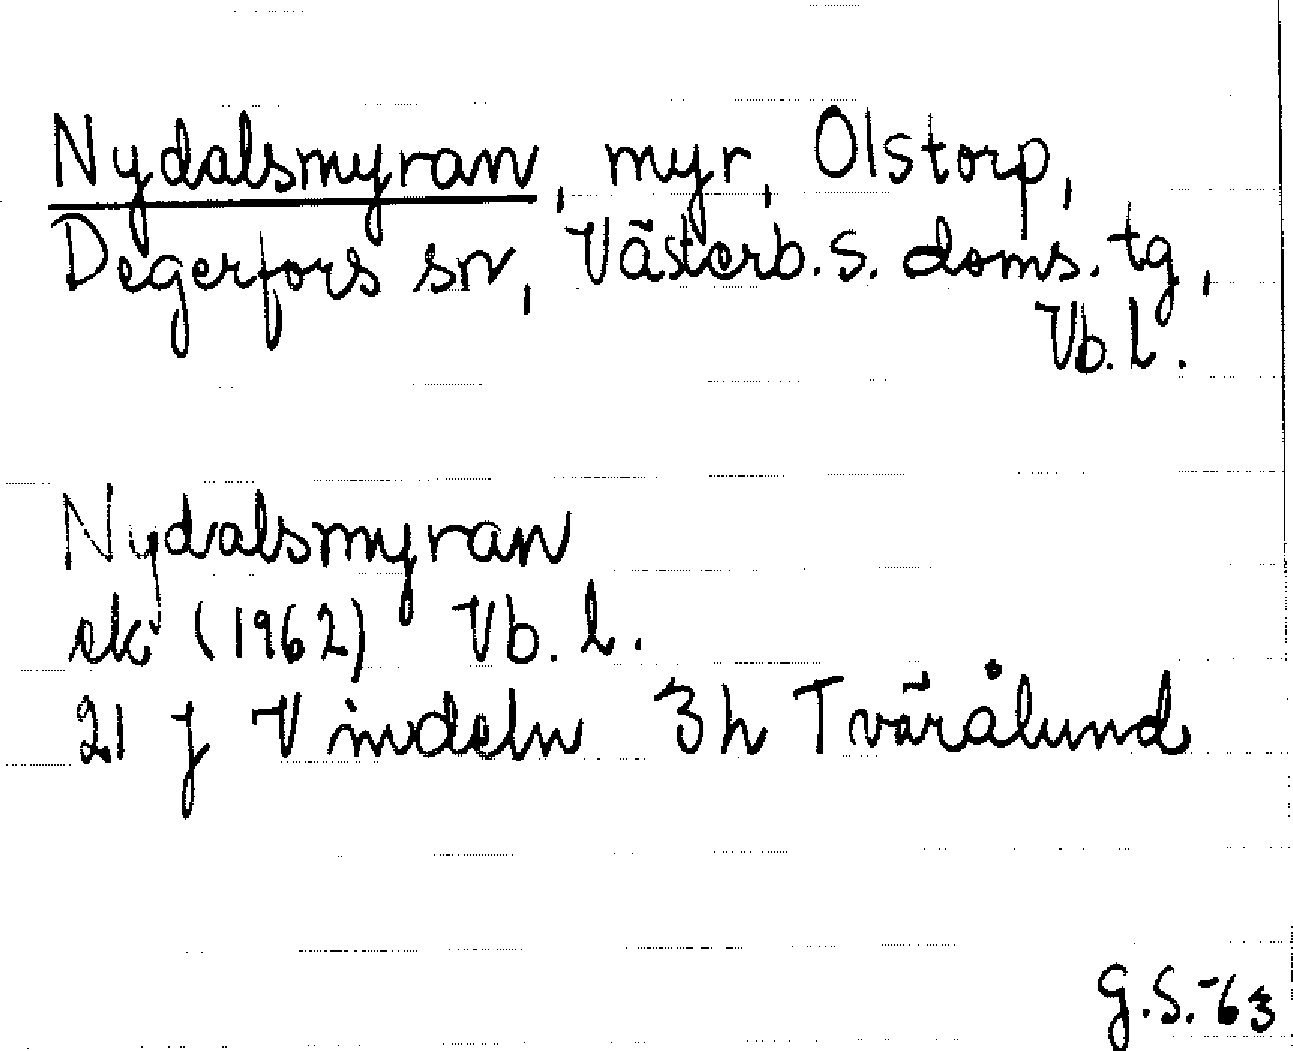 Nydalsmyran, myr, Olstorp,
Degerfors sn, Västerb. s. doms. tg,
Vb. l.
Nydalsmyran
ek (1962) Vb. l.
21 J Vindeln 3h Tvärålund
G.S.-63